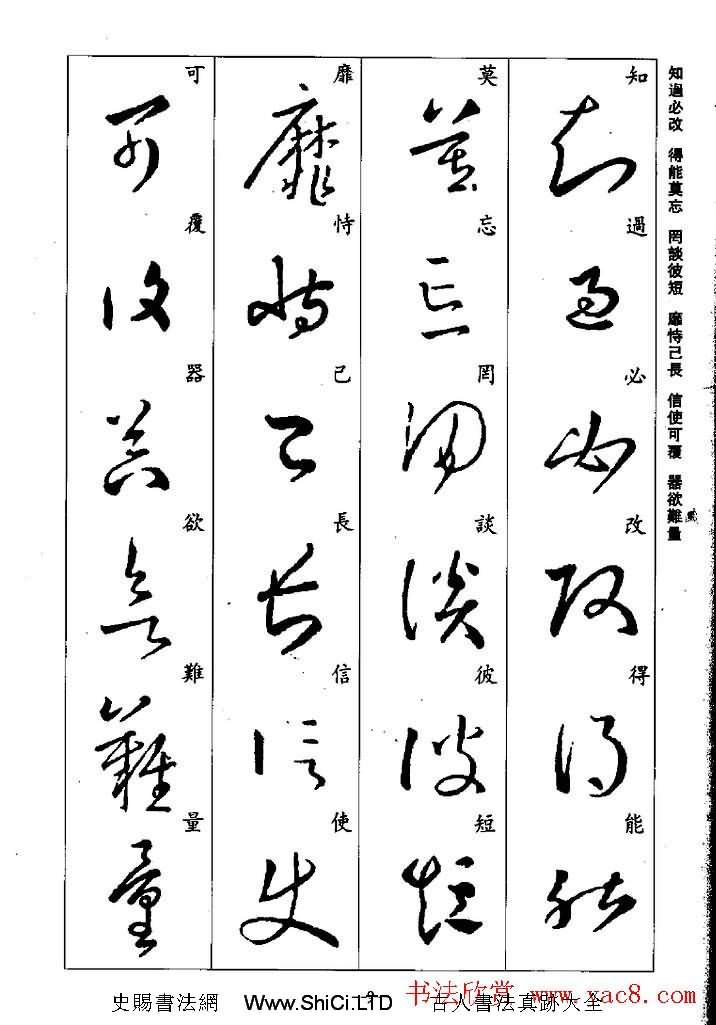 知過必改 得能莫忘 罔談彼短 靡恃己長 信使可覆 器欲難量
知過必改得能
莫忘罔談彼短
靡恃己長信使
可覆器欲難量
史賜書法網 Www.ShiCi.LTD 古人書法真跡大全
书法欣赏 www.xac8.com